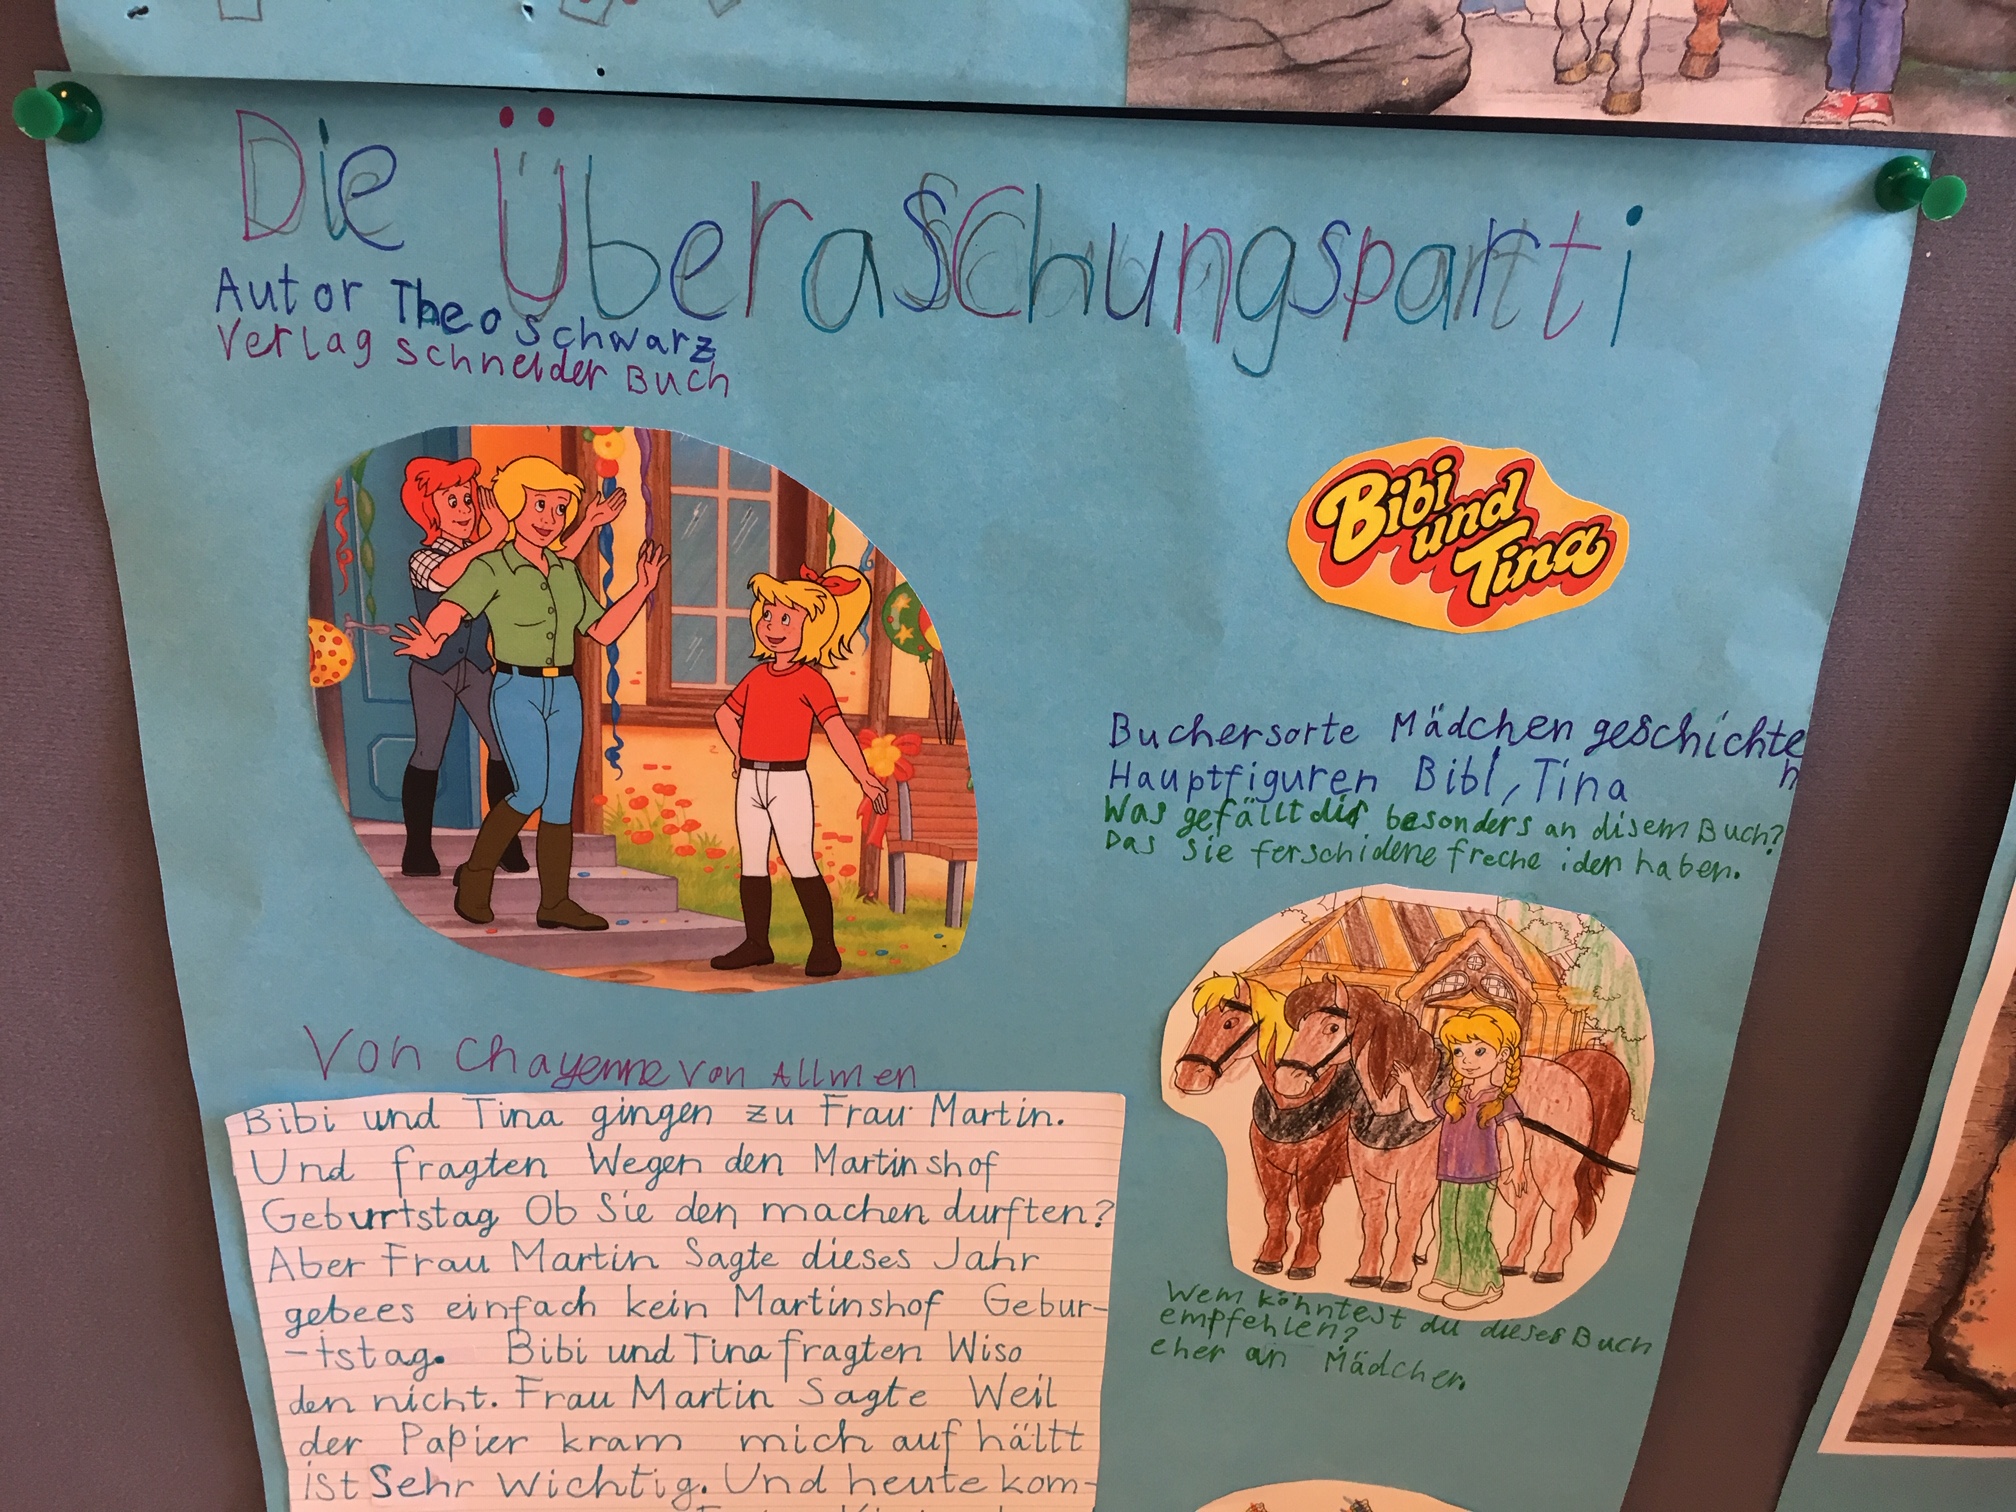 Die Überaschungsparti
Autor Theo Schwarz
Verlag Schneider Buch
Bibi
und
Tina
Buchersorte Mädchen geschichte
n
Hauptfiguren Bibi, Tina
Was gefällt dir besonders an disem Buch?
Das sie ferschidene freche iden haben.
Von Chayenne von Allmen
Bibi und Tina gingen zu Frau Martin.
Und fragten Wegen den Martinshof
Geburtstag Ob Sie den machen durften?
Aber Frau Martin Sagte dieses Jahr
gebees einfach kein Martinshof Gebur-
-tstag. Bibi und Tina fragten Wiso
den nicht. Frau Martin Sagte Weil
der Papier kram mich auf hältt
ist Sehr Wichtig. Und heute kom-
Wem könntest du dieses Buch
empfehlen?
eher an Mädchen.